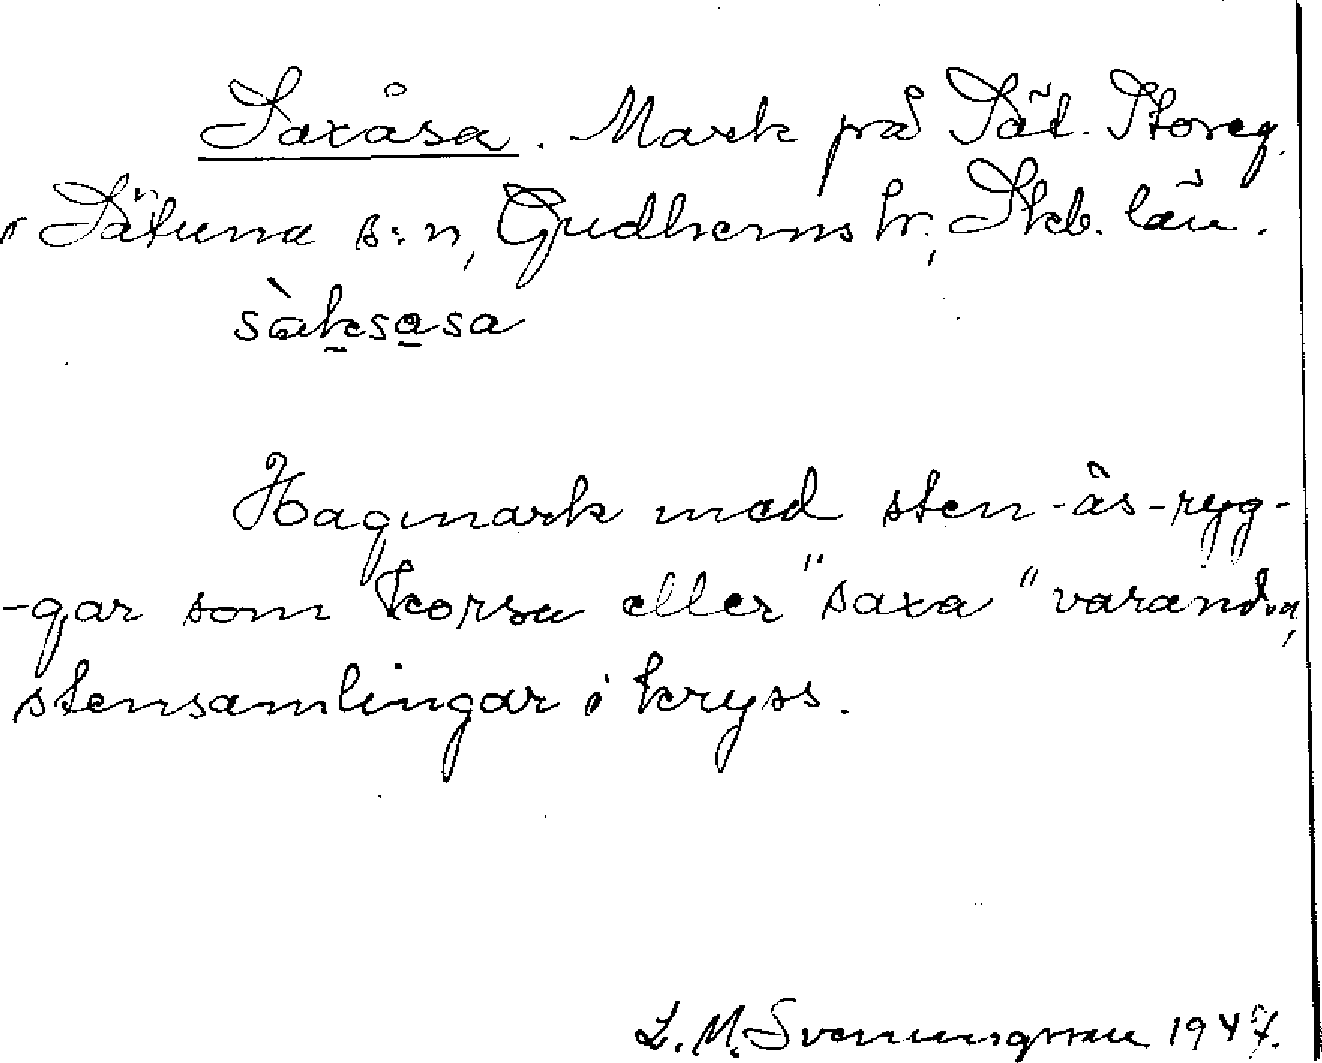 Saxåsa. Mark på Sät. Storeg.
i Sätuna s:n, Gudhems hr; Skb. län.
sàksasa
Hagmark med sten-ås-ryg-
-gar som korsa eller "saxa" varandra,
stensamlingar i kryss.
L. M. Svenungsson 1947.